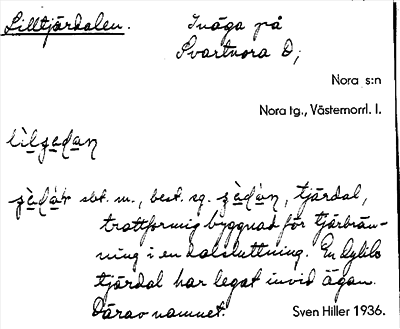 Lilltjärdalen. Inäga på
Svartvora D;
Nora s:n
Nora tg., Västernorrl. l.
sbt. m., best. sg. tjärdal,
trattformig byggnad för tjärbrän-
ning i en dalsluttning. En dylik
tjärdal har legat invid ägan.
Därav namnet. Sven Hiller 1936.